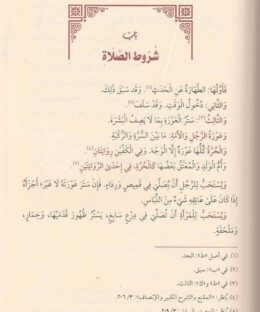 باب
شُرُوطِ الصَّلَاةِ
فَأَوَّلُهَا: الطَّهَارَةُ عَنِ الْحَدَثِ(١)، وَقَدْ سَبَقَ ذَلِكَ.
وَالثَّانِي: دُخُولُ الْوَقْتِ، وَقَدْ سَلَفَ(٢).
وَالثَّالِثُ(٣): سَتْرُ الْعَوْرَةِ بِمَا لَا يَصِفُ الْبَشَرَةَ.
وَعَوْرَةُ الرَّجُلِ وَالْأَمَةِ: مَا بَيْنَ السُّرَّةِ وَالرُّكْبَةِ.
وَالْحُرَّةُ كُلُّهَا عَوْرَةٌ إِلَّا الْوَجْهَ، وَفِي الْكَفَّيْنِ رِوَايَتَانِ(٤).
وَأُمُّ الْوَلَدِ وَالْمُعْتَقُ بَعْضُهَا كَالْحُرَّةِ، فِي إِحْدَى الرِّوَايَتَيْنِ(٥).
وَيُسْتَحَبُّ لِلرَّجُلِ أَنْ يُصَلِّيَ فِي قَمِيصٍ وَرِدَاءٍ، فَإِنْ سَتَرَ عَوْرَتَهُ لَا غَيْرَ؛ أَجْزَأَهُ
إِذَا كَانَ عَلَى عَاتِقِهِ شَيْءٌ مِنَ اللِّبَاسِ.
وَيُسْتَحَبُّ لِلْمَرْأَةِ أَنْ تُصَلِّيَ فِي دِرْعٍ سَابِغٍ، يَسْتُرُ ظُهُورَ قَدَمَيْهَا، وَخِمَارٍ،
وَمِلْحَفَةٍ.
(١) في أصل «ط»: الحد.
(٢) في «ب»: سبق.
(٣) في «ط» و«ك»: الثالث.
(٤) يُنظر: «المقنع والشرح الكبير والإنصاف»: ٣/ ٢٠٦.